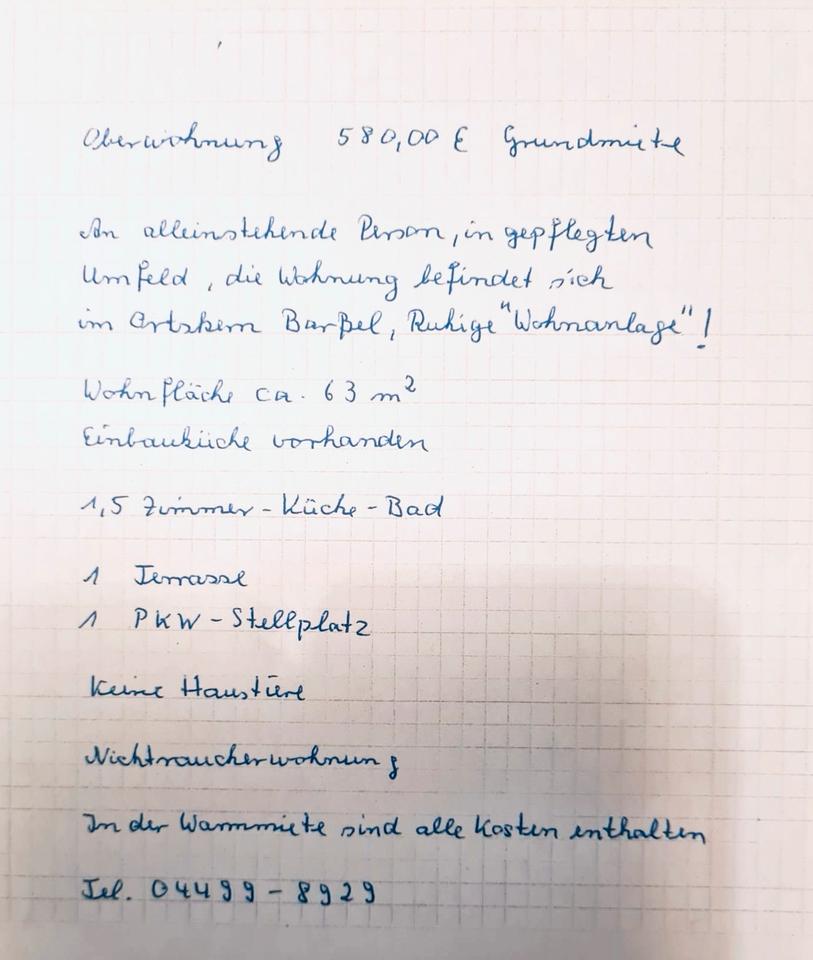 Oberwohnung 580,00 € Grundmiete
An alleinstehende Person, in gepflegten
Umfeld, die Wohnung befindet sich
im Ortskern Barßel, Ruhige "Wohnanlage"!
Wohnfläche ca. 63 m²
Einbauküche vorhanden
1,5 Zimmer - Küche - Bad
1 Terrasse
1 PKW - Stellplatz
Keine Haustiere
Nichtraucherwohnung
In der Warmmiete sind alle Kosten enthalten
Tel. 04499 - 8929